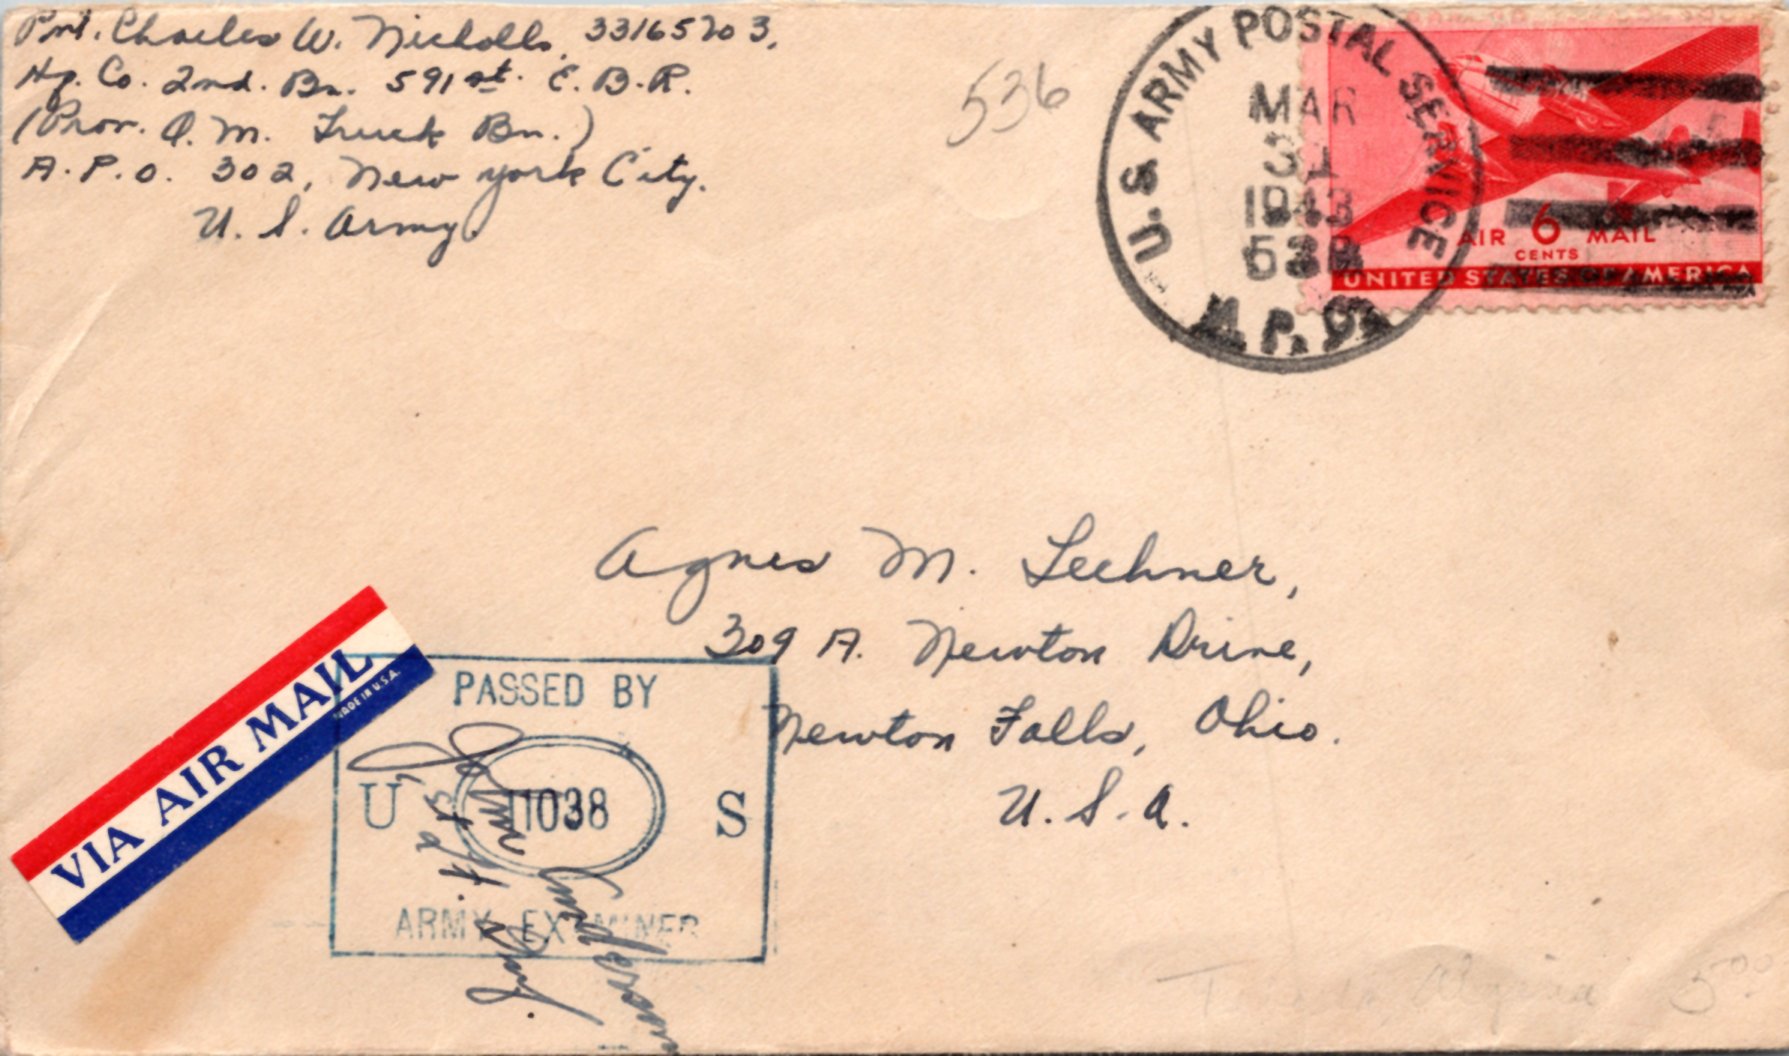 Pvt. Charles W. Nicholls, 33165703,
Hq. Co. 2nd. Bn. 591st. E. B. R.
(Prov. Q. M. Truck Bn.)
A. P. O. 302, New York City.
U. S. Army.
536
U.S. ARMY POSTAL SERVICE
MAR
31
1943
A.P.O.
AIR 6 MAIL
CENTS
UNITED STATES OF AMERICA
Agnes M. Lechner,
309 A. Newton Drive,
Newton Falls, Ohio.
U. S. A.
VIA AIR MAIL
MADE IN U.S.A.
PASSED BY
U 11038 S
ARMY EXAMINER
John Anderson
1st Lt. Inf.
5.00